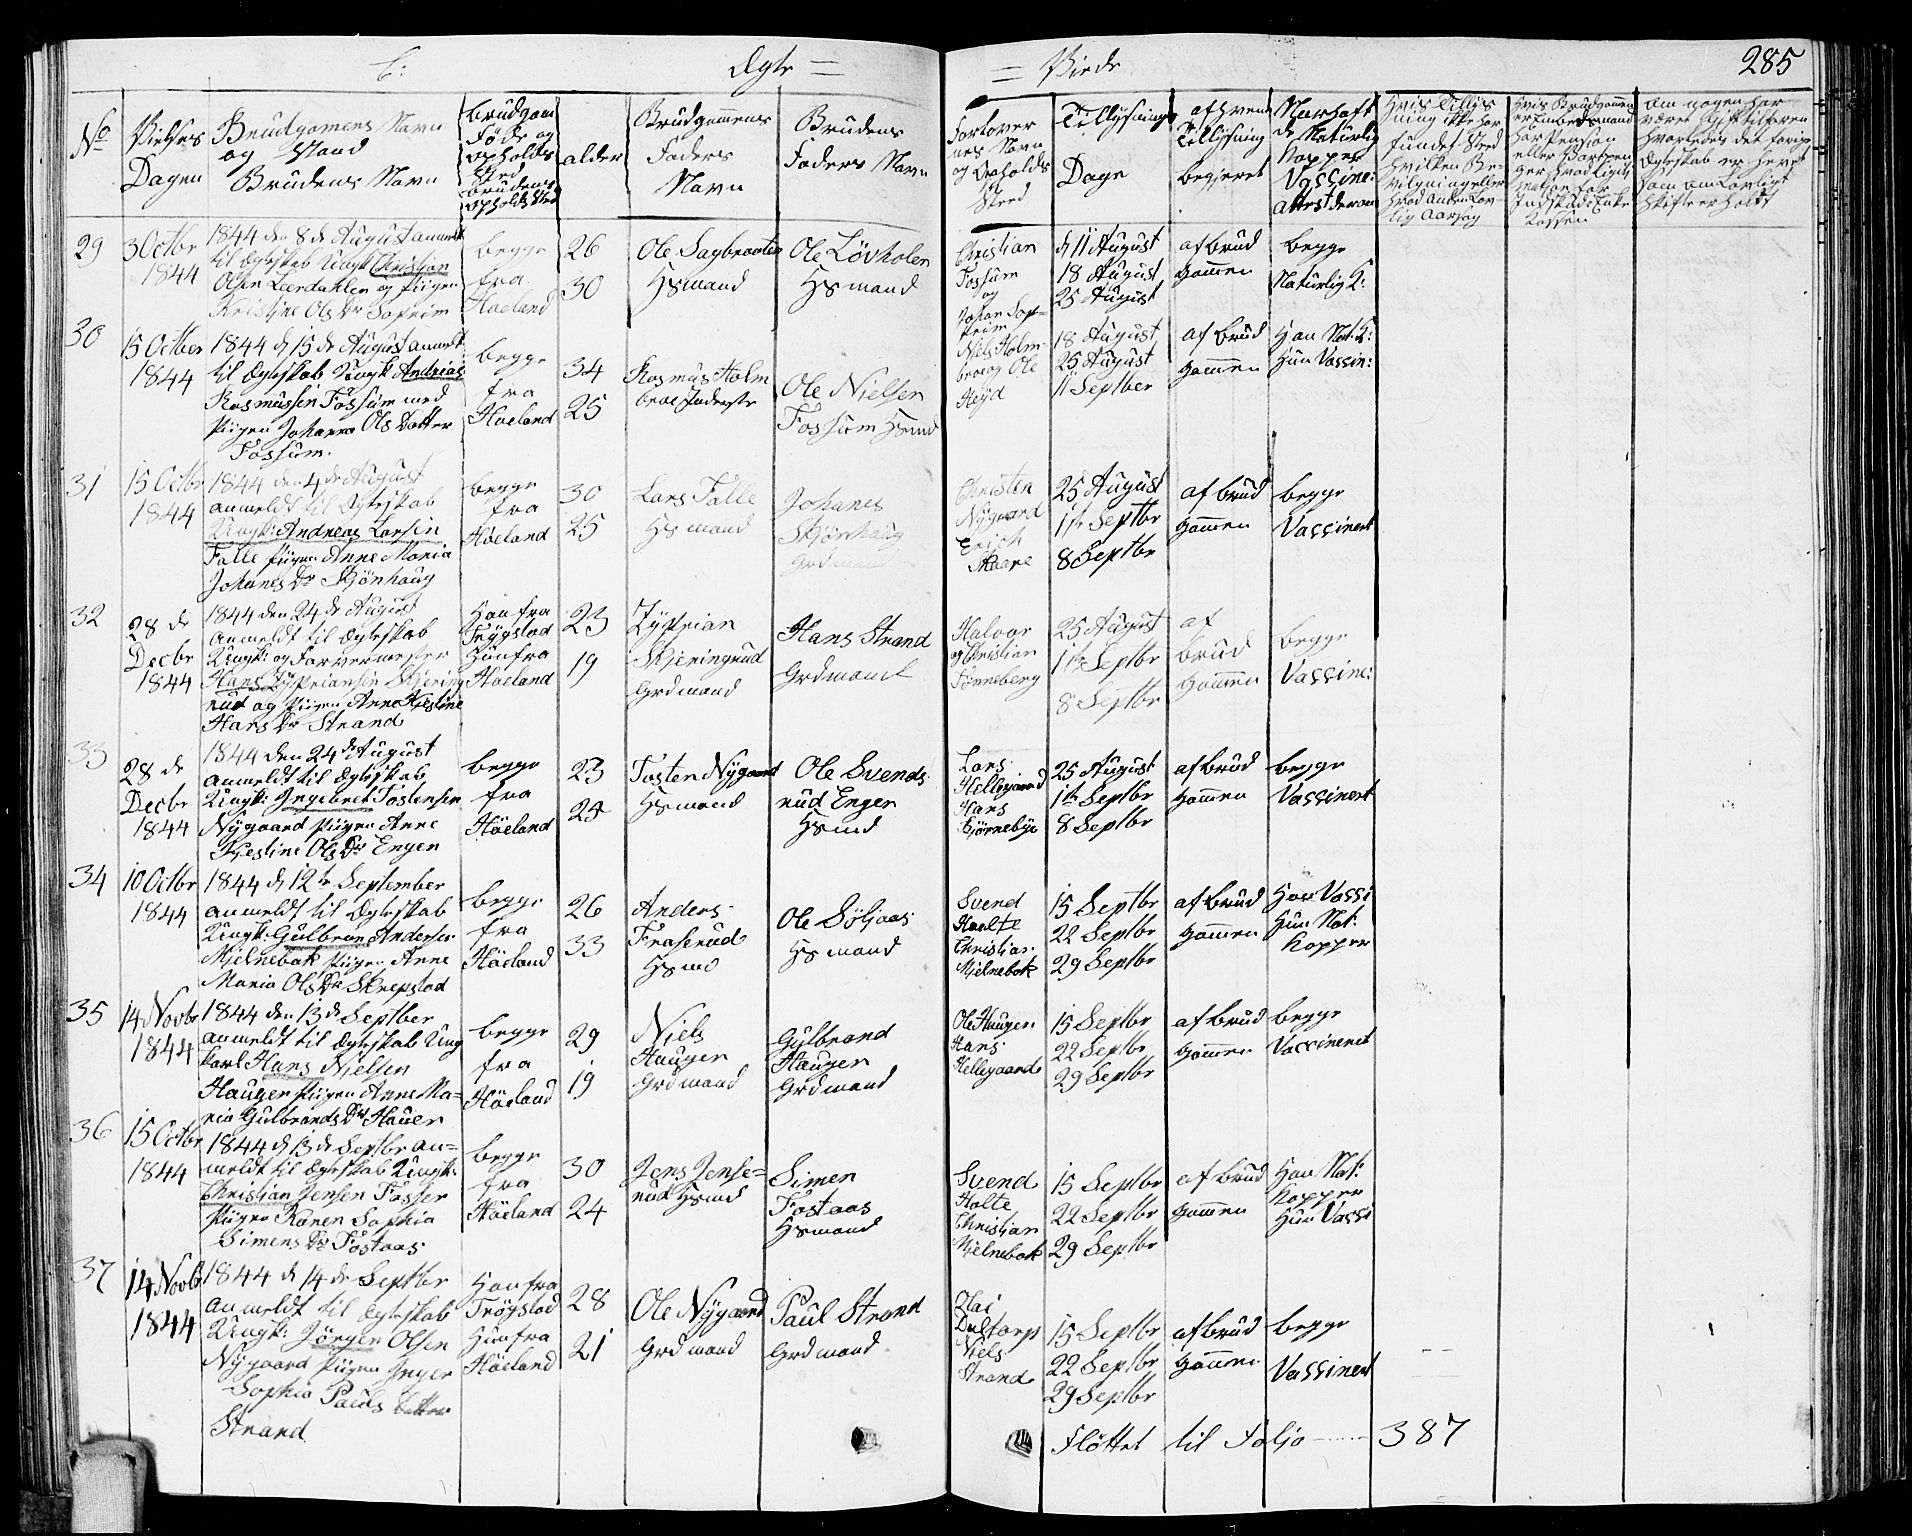 C:
Ægte =
= Viede
285
No
Vielses
Dagen
Brudgomens Navn
og Stand
Brudens Navn
Brudgom
Føde og
opholds
Sted
Brudens
opholdsSted
alder
Brudgommens
Faders
Navn
Brudens
Faders Navn
Forlover
nes Navn
og Opholds
Sted
Tillysnings
Dage
af hvem
Tillysning
begjeret
Om nogen har
været Gift tilforen
hvorledes det forige
Ægteskab er hevet
29
3 Octbr
1844
1844 den 8de August anmelt
til Ægteskab Ungk Christian
Olsen Lierdahlen og Piigen
Kristine Ols Dr Sofrim
begge
fra
Høeland
26
30
Ole Sagbraaten
Hsmand
Ole Løvholen
Hsmand
Christian
Fossum
og
d 11 August
18 August
25 August
af brud
gommen
begge
Naturlig K:
30
15 Octber
1844
1844 d 15 de August anmelt
til Ægteskab Ungk Andreas
Rasmussen Fossum med
Piigen Johanna Ols Datter
Fossum.
begge
fra
Høeland
34
25
Rasmus Holm
Ole Nielsen
Fossum Hsmd
Niels Holm-
braa og Ole
Heyd
18 August
25 August
11 Septber
af brud
gommen
Han Nat: K:
Hun Vassin:
31
15 Octbr
1844
1844 den 4 de August
anmeldt til Ægteskab
Ungk: Andreas Larsen
Falle piigen Anne Maria
Johanes Dr Skjönhaug
begge
fra
Høeland
30
25
Lars Falle
Hsmand
Johanes
Skjönhaug
Grdmand
Christen
Nygaard
Erich
25 August
1te Septbr
8 Septbr
af brud
gommen
begge
Vassinert
32
28 de
Decbr
1844
1844 den 24 de August
anmeldt til Ægteskab
Ungk: og Farvermester
Hans Zypriansen Skjering
rud og Piigen Anne Kjestine
Hans Dr Strand
Han fra
Trygstad
Hun fra
Høeland
23
19
Zyprian
Skjeringrud
Grdmand
Hans Strand
Grdmand
Halvor
og Christian
Tønneberg
25 August
1te Septbr
8 Septbr
af
brud
gommen
begge
Vassine:
33
28 de
Decbr
1844
1844 den 24 de August
anmeldt til Ægteskab
Ungk: Ingebret Tostensen
Nygaard Piigen Anne
Kjestine Ols Dr Engen
begge
fra
Høeland
23
24
Tosten Nygaard
Hsmand
Ole Svends
rud Engen
Hsmd
Lars
Hellegaard
Hans
Bjørnebye
25 August
1te Septbr
8 Septbr
af brud
gommen
begge
Vassinert
34
10 Octbr
1844
1844 d 12te September
anmeldt til Ægteskab
Ungk: Gulbran Andersen
Mjelnebak Piigen Anne
Maria Ols Dr Skrepstad
begge
fra
Høeland
26
33
Anders
Fraserud
Hsmd
Ole Søljaas
Hsmand
Svend
Haalte
Christian
Mjelnebak
15 Septbr
22 Septbr
29 Septbr
af brud
gommen
Han Vassi
Hun Nat:
Kopper
35
14 Novbr
1844
1844 den 13 de Septber
anmeldt til Ægteskab Ung
karl Hans Nielsen
Haugen Piigen Anne Ma=
ria Gulbrands Dr Hauer
begge
fra
Høeland
29
19
Niels
Haugen
Grdmand
Gulbrand
Haugen
Grdmand
Ole Haugen
Hans
Hellegaard
15 Septbr
22 Septbr
29 Septbr
af brud
gommen
begge
Vaccinert
36
15 Octbr
1844
1844 d 13 de Septbr an=
meldt til Ægteskab Ungk:
Christian Jensen Fosser
Piigen Karen Sophia
Simens Dr Fostaas
begge
fra
Høeland
30
24
Jens Jense=
rud Hsmd
Simen
Fostaas
Hsmand
Svend
Holte
Christian
Mjelnebak
15 Septbr
22 Septbr
29 Septbr
af brud
gommen
Han Nat:
Kopper
Hun Vassi
37
14 Novb
1844
1844 d 14 de Septbr
anmeldt til Ægteskab
Ungk: Jörgen Olsen
Nygaard Piigen Inger
Sophia Pauls datter
Strand
Han fra
Trögstad
Hun fra
Höeland
28
21
Ole Nygaard
Grdmand
Paul Strand
Grdmand
Niels
Strand
15 Septbr
22 Septbr
29 Septbr
af brud
gommen
begge
Vassinert
Flöttet til Foljo ...... 387